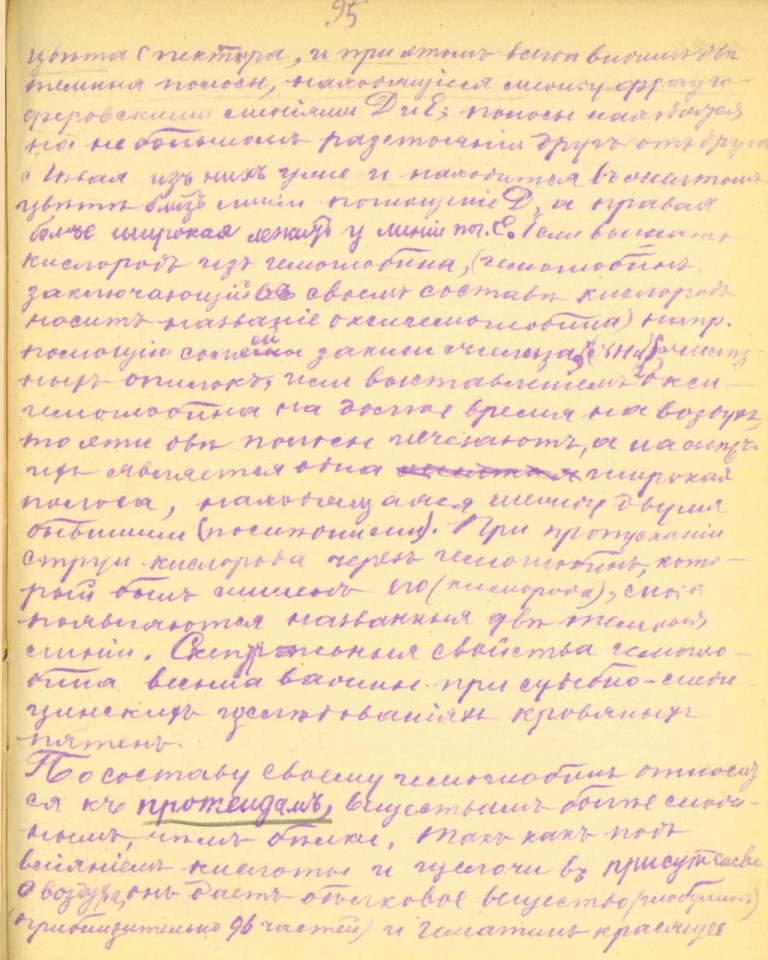 95
цвѣта спектра, и при этомъ всегда видимъ двѣ
темныя полосы, находящіеся между фрауго-
феровскими линіями D и E; полосы находятся
на небольшомъ разстояніи другъ отъ друга
Лѣвая изъ нихъ уже и находится въ желтомъ
цвѣтѣ близъ линіи поглощеніе D, а правая
болѣе широкая лежитъ у линіи E. Если выгнать
кислородъ изъ гемоглобина, (гемоглобинъ
заключающій въ своемъ составѣ кислородъ
носитъ названіе оксигемоглобина) напр.
помощію закиси желѣза,
ныхъ опилокъ, или выставленіемъ окси-
гемоглобина на долгое время на воздухъ,
то эти двѣ полосы исчезаютъ, а на ихъ
является одна широкая
полоса, находящаяся между двумя
бывшими (посинѣлыми). При пропусканіи
струи кислорода черезъ гемоглобинъ, кото-
рый былъ лишенъ его (кислорода), снова
появляются названныя двѣ темныя
линіи. Спектральныя свойства гемогло-
бина весьма важны при судебно-меди-
цинскихъ изслѣдованіяхъ кровяныхъ
пятенъ.
По составу своему гемоглобинъ относит
ся къ протеидамъ, веществамъ болѣе слож-
нымъ, чѣмъ бѣлки, такъ какъ подъ
вліяніемъ кислоты и щелочи въ присутствіи
воздуха, онъ даетъ бѣлковое вещество (глобулинъ)
(приблизительно 96 частей) и гематинъ красящее